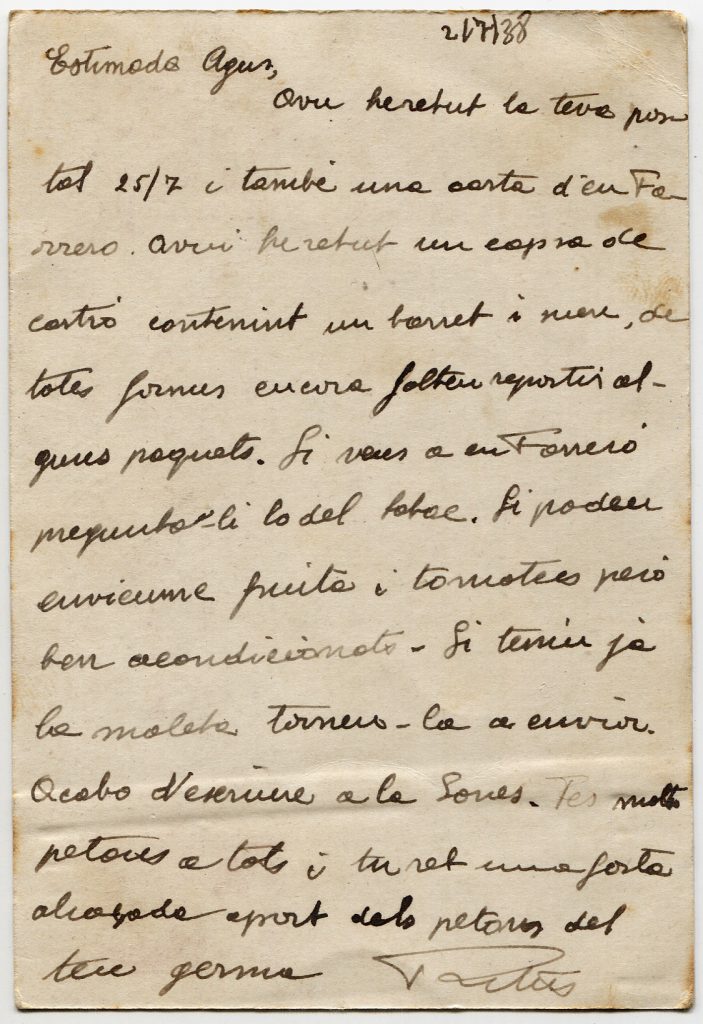 2/7/38
Estimada Agus,
Avui he rebut la teva pos-
tal 25/7 i també una carta d'en Fa-
rrero. Avui he rebut un capsa de
cartró contenint un barret i nieu, de
totes formes encora falten repartir al-
guns paquets. Si veus a en Farreró
pregunta-li lo del tabac. Si podeu
envieume fruita i tomatecs però
ben acondicionats - Si teniu ja
la maleta torneu-la a enviar.
Acabo d'escriure a la Sones. Fes molts
petons a tots i tu ret una forta
abraçada apart dels petons del
teu germa